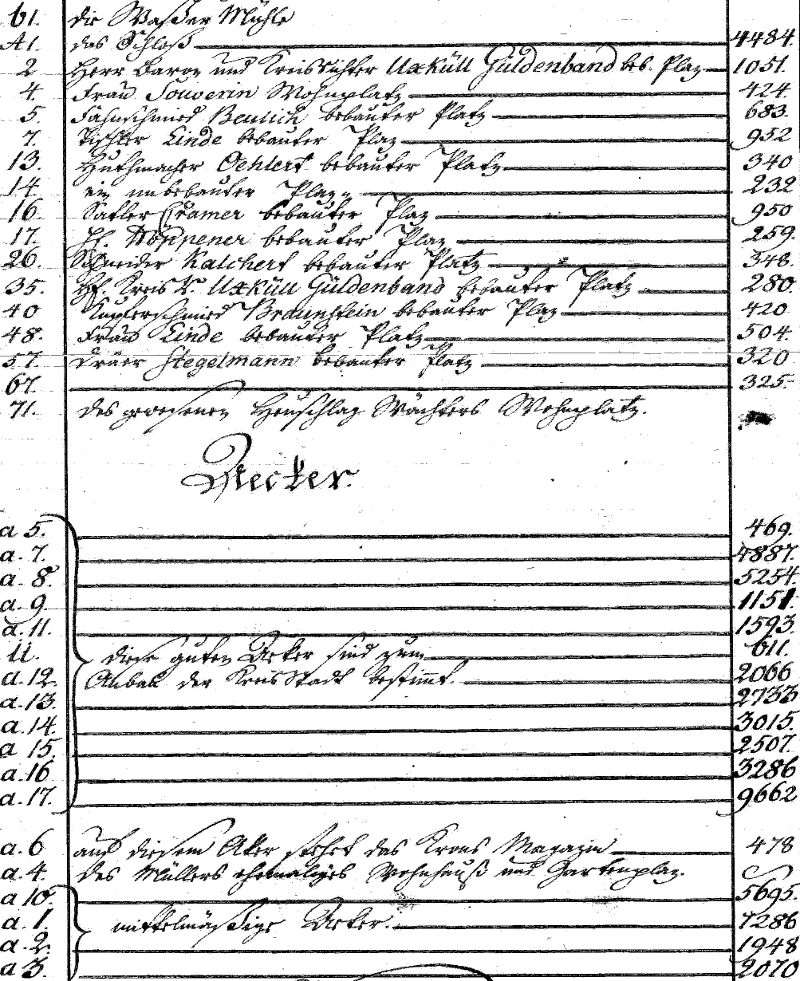 b1. die Waßer Mühle
A1. das Schloß 4484.
2 Herr Baron und Kreisrichter Uxküll Güldenband beb. Plaz 1051.
4. Frau Souverin Wohnplatz 424
5. Fahnschmied Beulich bebauter Platz 683.
7. Tischler Linde bebauter Plaz 952
13. Huthmacher Oehlert bebauter Platz 340
14. ein unbebauter Plaz 232
16. Satler Cramer bebauter Plaz 950
17. H. Höppener bebauter Plaz 259.
26. Schneider Kalchert bebauter Platz 348.
35. H. Kreis R. Uxküll Güldenband bebauter Platz 280.
40 Kupferschmied Braunstein bebauter Plaz 420
48. Frau Linde bebauter Platz 504.
57. Dräer Stegelmann bebauter Platz 320
67. 325.
71. des gewesenen Heuschlag Wächters Wohnplatz.
Aecker.
a 5. 469.
a. 7. 4887.
a. 8. 5254.
a. 9. 1151.
a. 11. 1593.
11. diese guten Aeker sind zum 611.
a. 12. Anbau der Kreis Stadt bestimt. 2066
a. 13. 2733
a. 14. 3015.
a 15. 2507.
a. 16 3286
a. 17. 9662
a. 6 auf diesem Aker stehet das Krons Magazin 478
a. 4. des Müllers ehemaliges Wohnhauß und Gartenplaz.
a 10. 5695.
a. 1. mittelmäßige Aeker. 7286
a. 2. 1948
a 3. 2070